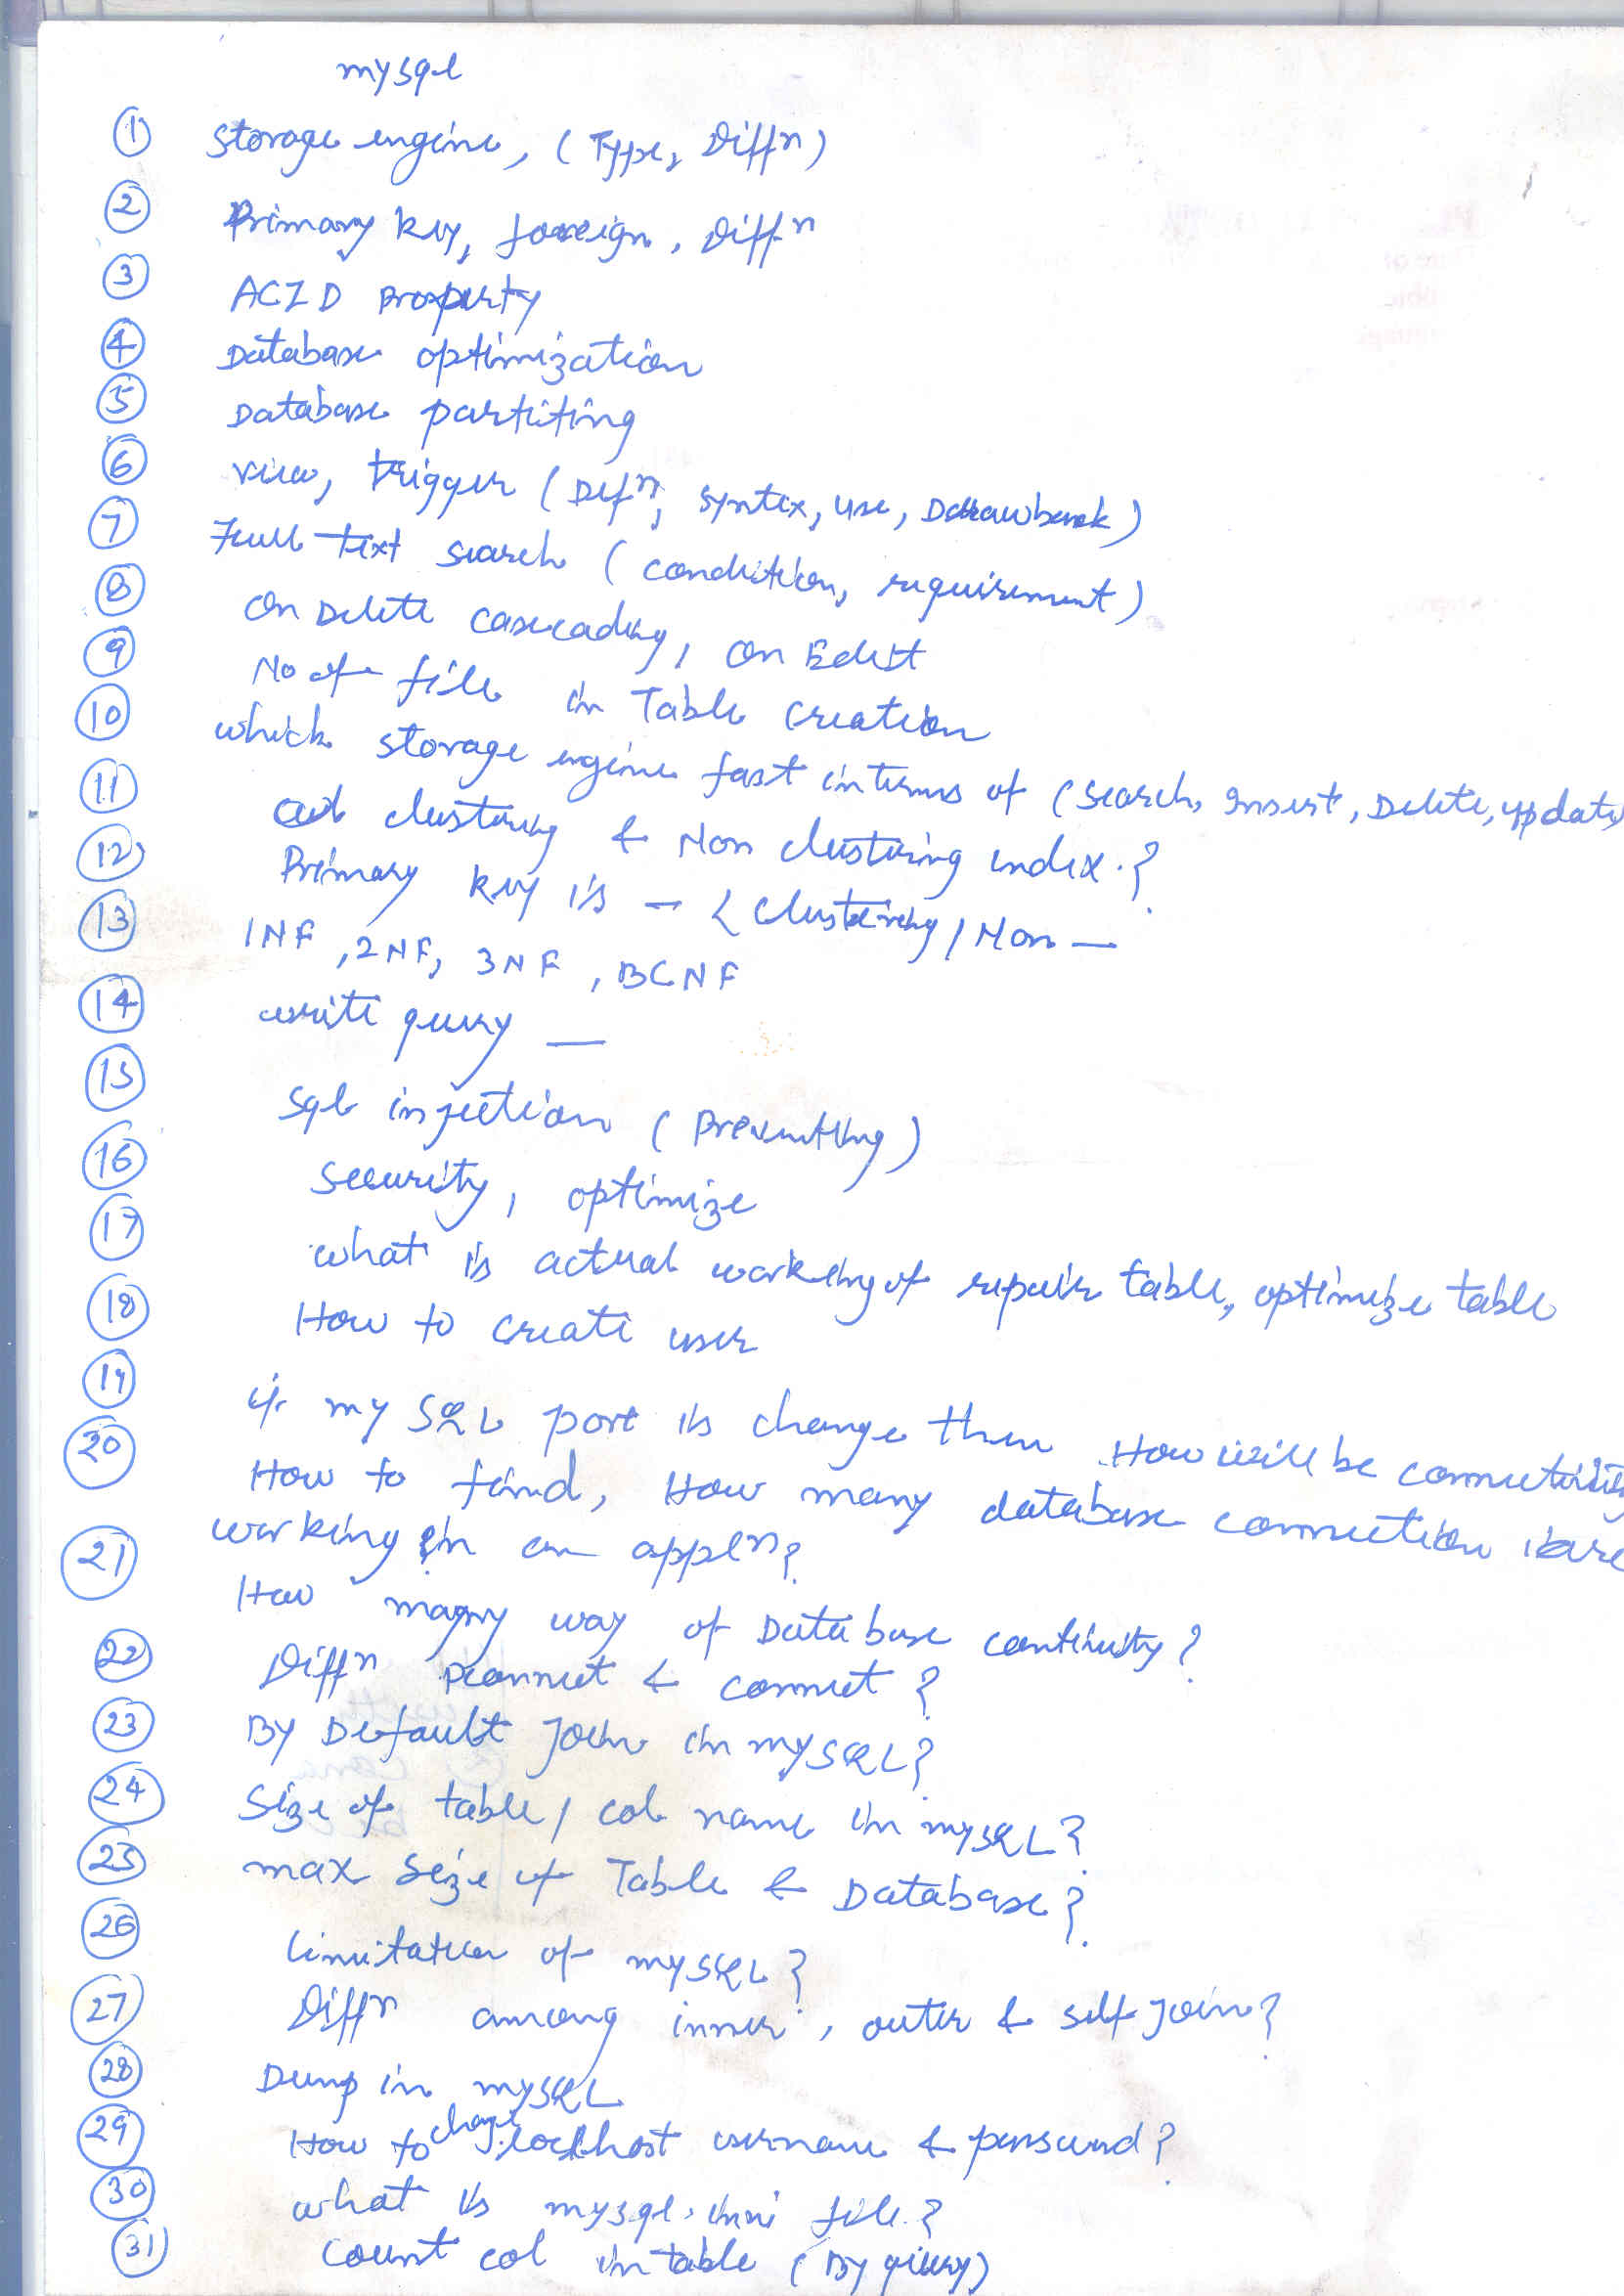 mysql
① Storage engine, (Type, Diffn)
② Primary key, foreign, Diffn
③ ACID Property
④ Database optimization
⑤ Database partiting
⑥ view, trigger (Defn, syntex, use, Drawback)
⑦ Full text search (condition, requirement)
⑧ on Delete cascading, on Edit
⑨ No of file in Table Creation
⑩ which storage engine fast interms of (search, Insert, Delete, update
⑪ clustering & Non clustering index.?
⑫ Primary key is - < clustering / Non —
⑬ 1NF, 2NF, 3NF, BCNF
⑭ write query —
⑮ Sql injection (Preventing)
⑯ Security, optimize
⑰ what is actual working of repair table, optimize table
⑱ How to create user
⑲ if my SQL port is change then How will be connectivity
⑳ How to find, How many database connection are
working in an appln?
㉑ How many way of Database contivity?
㉒ Diffn Pconnect & connect?
㉓ By Default Join in mySQL?
㉔ Size of table / col name in mySQL?
㉕ max size of Table & Database?
㉖ limitation of mySQL?
㉗ Diffn among inner, outer & self join?
㉘ Dump in mySQL
㉙ How to change localhost username & password?
㉚ what is mysql.ini file?
㉛ Count col in table (By query)